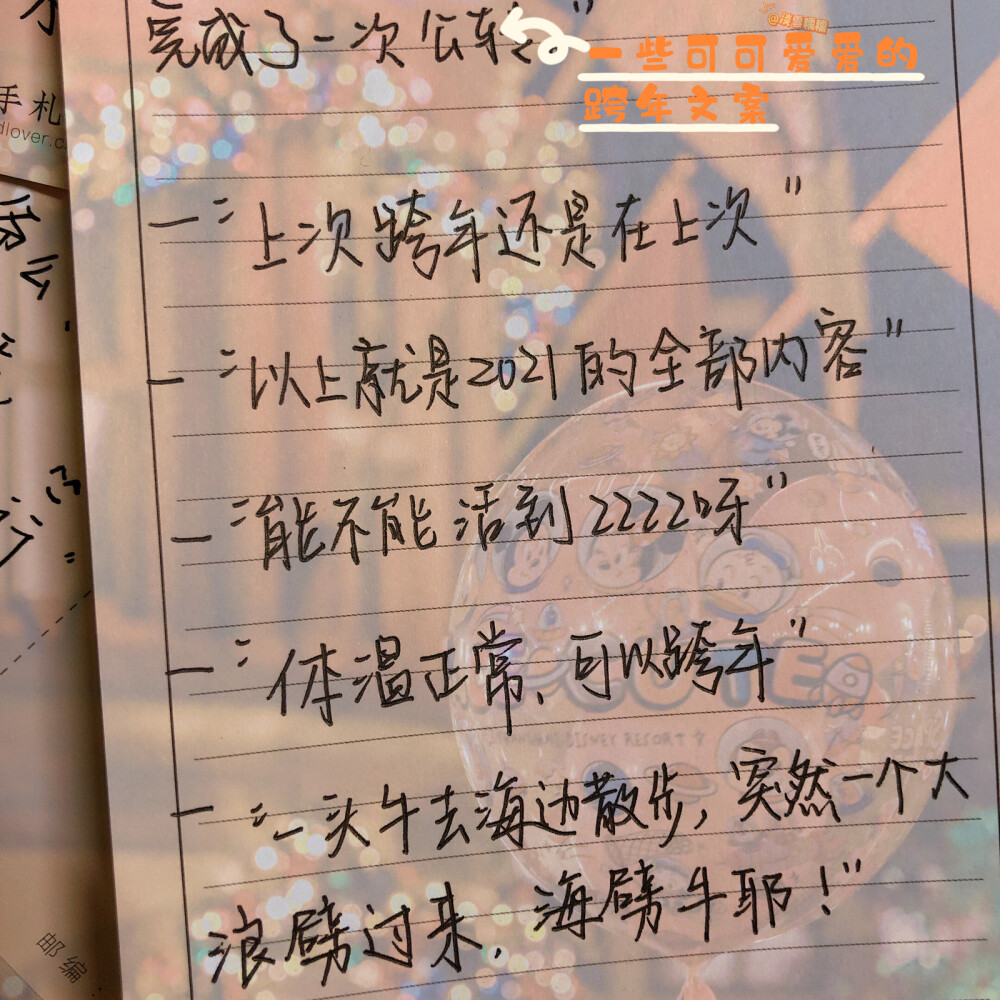 完成了一次公转"
一些可可爱爱的
跨年文案
手札
dlover.c
一"上次跨年还是在上次"
一"以上就是2021的全部内容"
一"能不能活到2222呀"
一"体温正常、可以跨年"
DISNEY RESORT
一"一头牛去海边散步，突然一个大
浪劈过来，海劈牛耶！"
邮编